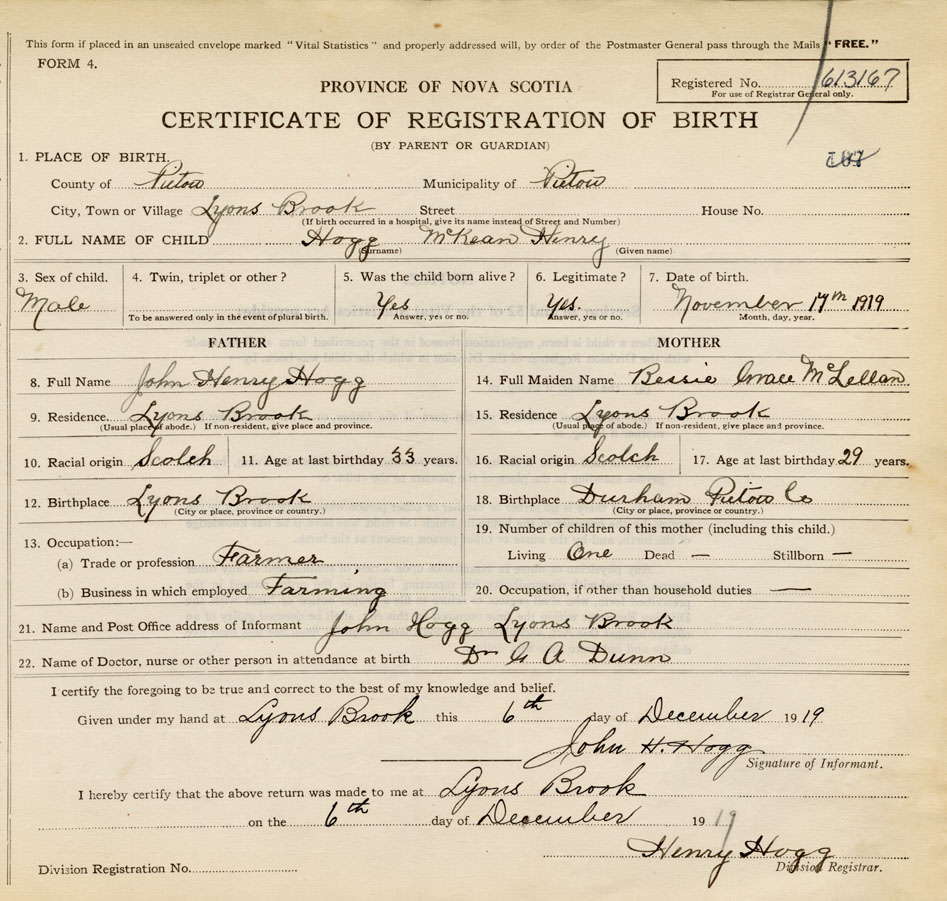 This form if placed in an unsealed envelope marked "Vital Statistics" and properly addressed will, by order of the Postmaster General pass through the Mails "FREE."
FORM 4.
Registered No. 613167
For use of Registrar General only.
PROVINCE OF NOVA SCOTIA
CERTIFICATE OF REGISTRATION OF BIRTH
(BY PARENT OR GUARDIAN)
1. PLACE OF BIRTH.
County of Pictou Municipality of Pictou
City, Town or Village Lyons Brook Street House No.
(If birth occurred in a hospital, give its name instead of Street and Number)
2. FULL NAME OF CHILD Hogg McKean Henry
(Surname) (Given name)
3. Sex of child. 4. Twin, triplet or other? 5. Was the child born alive? 6. Legitimate? 7. Date of birth.
Male Yes Yes. November 17th 1919
To be answered only in the event of plural birth. Answer, yes or no. Answer, yes or no. Month, day, year.
FATHER
8. Full Name John Henry Hogg
9. Residence. Lyons Brook
(Usual place of abode.) If non-resident, give place and province.
10. Racial origin Scotch 11. Age at last birthday 33 years.
12. Birthplace Lyons Brook
(City or place, province or country.)
13. Occupation:—
(a) Trade or profession Farmer
(b) Business in which employed Farming
MOTHER
14. Full Maiden Name Bessie Grace McLellan
15. Residence Lyons Brook
(Usual place of abode.) If non-resident, give place and province.
16. Racial origin Scotch 17. Age at last birthday 29 years.
18. Birthplace Durham Pictou Co
(City or place, province or country.)
19. Number of children of this mother (including this child.)
Living One Dead — Stillborn —
20. Occupation, if other than household duties —
21. Name and Post Office address of Informant John Hogg Lyons Brook
22. Name of Doctor, nurse or other person in attendance at birth Dr G A Dunn
I certify the foregoing to be true and correct to the best of my knowledge and belief.
Given under my hand at Lyons Brook this 6th day of December 1919
John H. Hogg
Signature of Informant.
I hereby certify that the above return was made to me at Lyons Brook
on the 6th day of December 1919
Henry Hogg
Division Registrar.
Division Registration No.